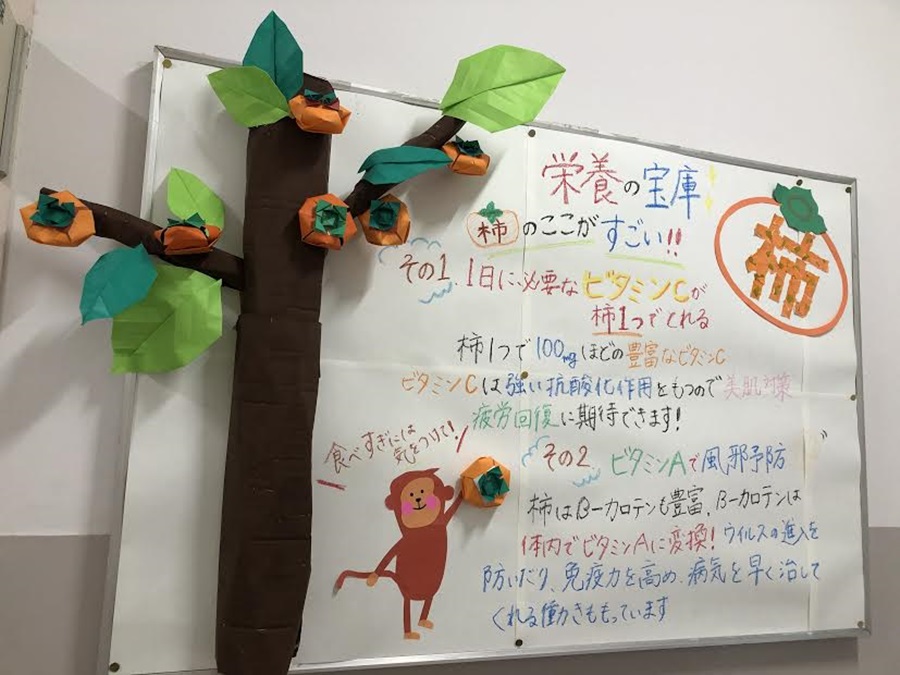 栄養の宝庫
柿のここがすごい!!
柿
その1. 1日に必要なビタミンCが
柿1つでとれる
柿1つで100mgほどの豊富なビタミンC
ビタミンCは強い抗酸化作用をもつので美肌対策
疲労回復に期待できます!
食べすぎには
気をつけて!
その2 ビタミンAで風邪予防
柿はβーカロテンも豊富、βーカロテンは
体内でビタミンAに変換!ウイルスの進入を
防いだり、免疫力を高め、病気を早く治して
くれる働きももっています